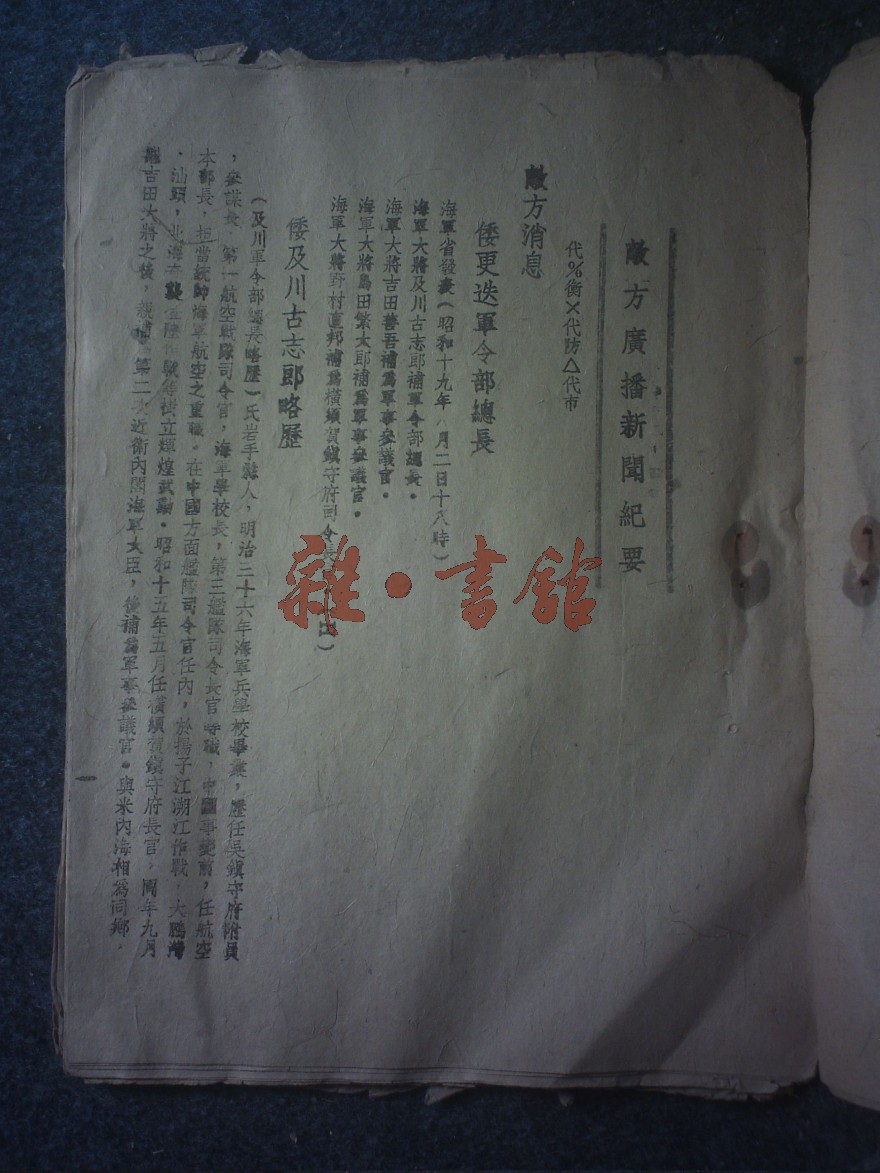 敵方廣播新聞紀要
代%衡×代防△代市
敵方消息
倭更迭軍令部總長
海軍省發表(昭和十九年八月二日十八時)
海軍大將及川古志郎補軍令部總長。
海軍大將吉田善吾補為軍事參議官。
海軍大將島田繁太郎補為軍事參議官。
海軍大將野村直邦補為橫須賀鎮守府司令長
倭及川古志郎略歷
(及川軍令部總長略歷)氏岩手縣人,明治三十六年海軍兵學校畢業,歷任吳鎮守府附員
,參謀長,第一航空戰隊司令官,海軍學校長,第三艦隊司令長官等職,中國事變前,任航空
本部長,担當統帥海軍航空之重職。在中國方面艦隊司令官任內,於揚子江溯江作戰,大鵬灣
,汕頭,北海等樹立輝煌武勳。昭和十五年五月任橫須賀鎮守府長官,同年九月
繼吉田大將之後,親補第二次近衛內閣海軍大臣,後補為軍事參議官。與米內海相為同鄉,
雜·書館